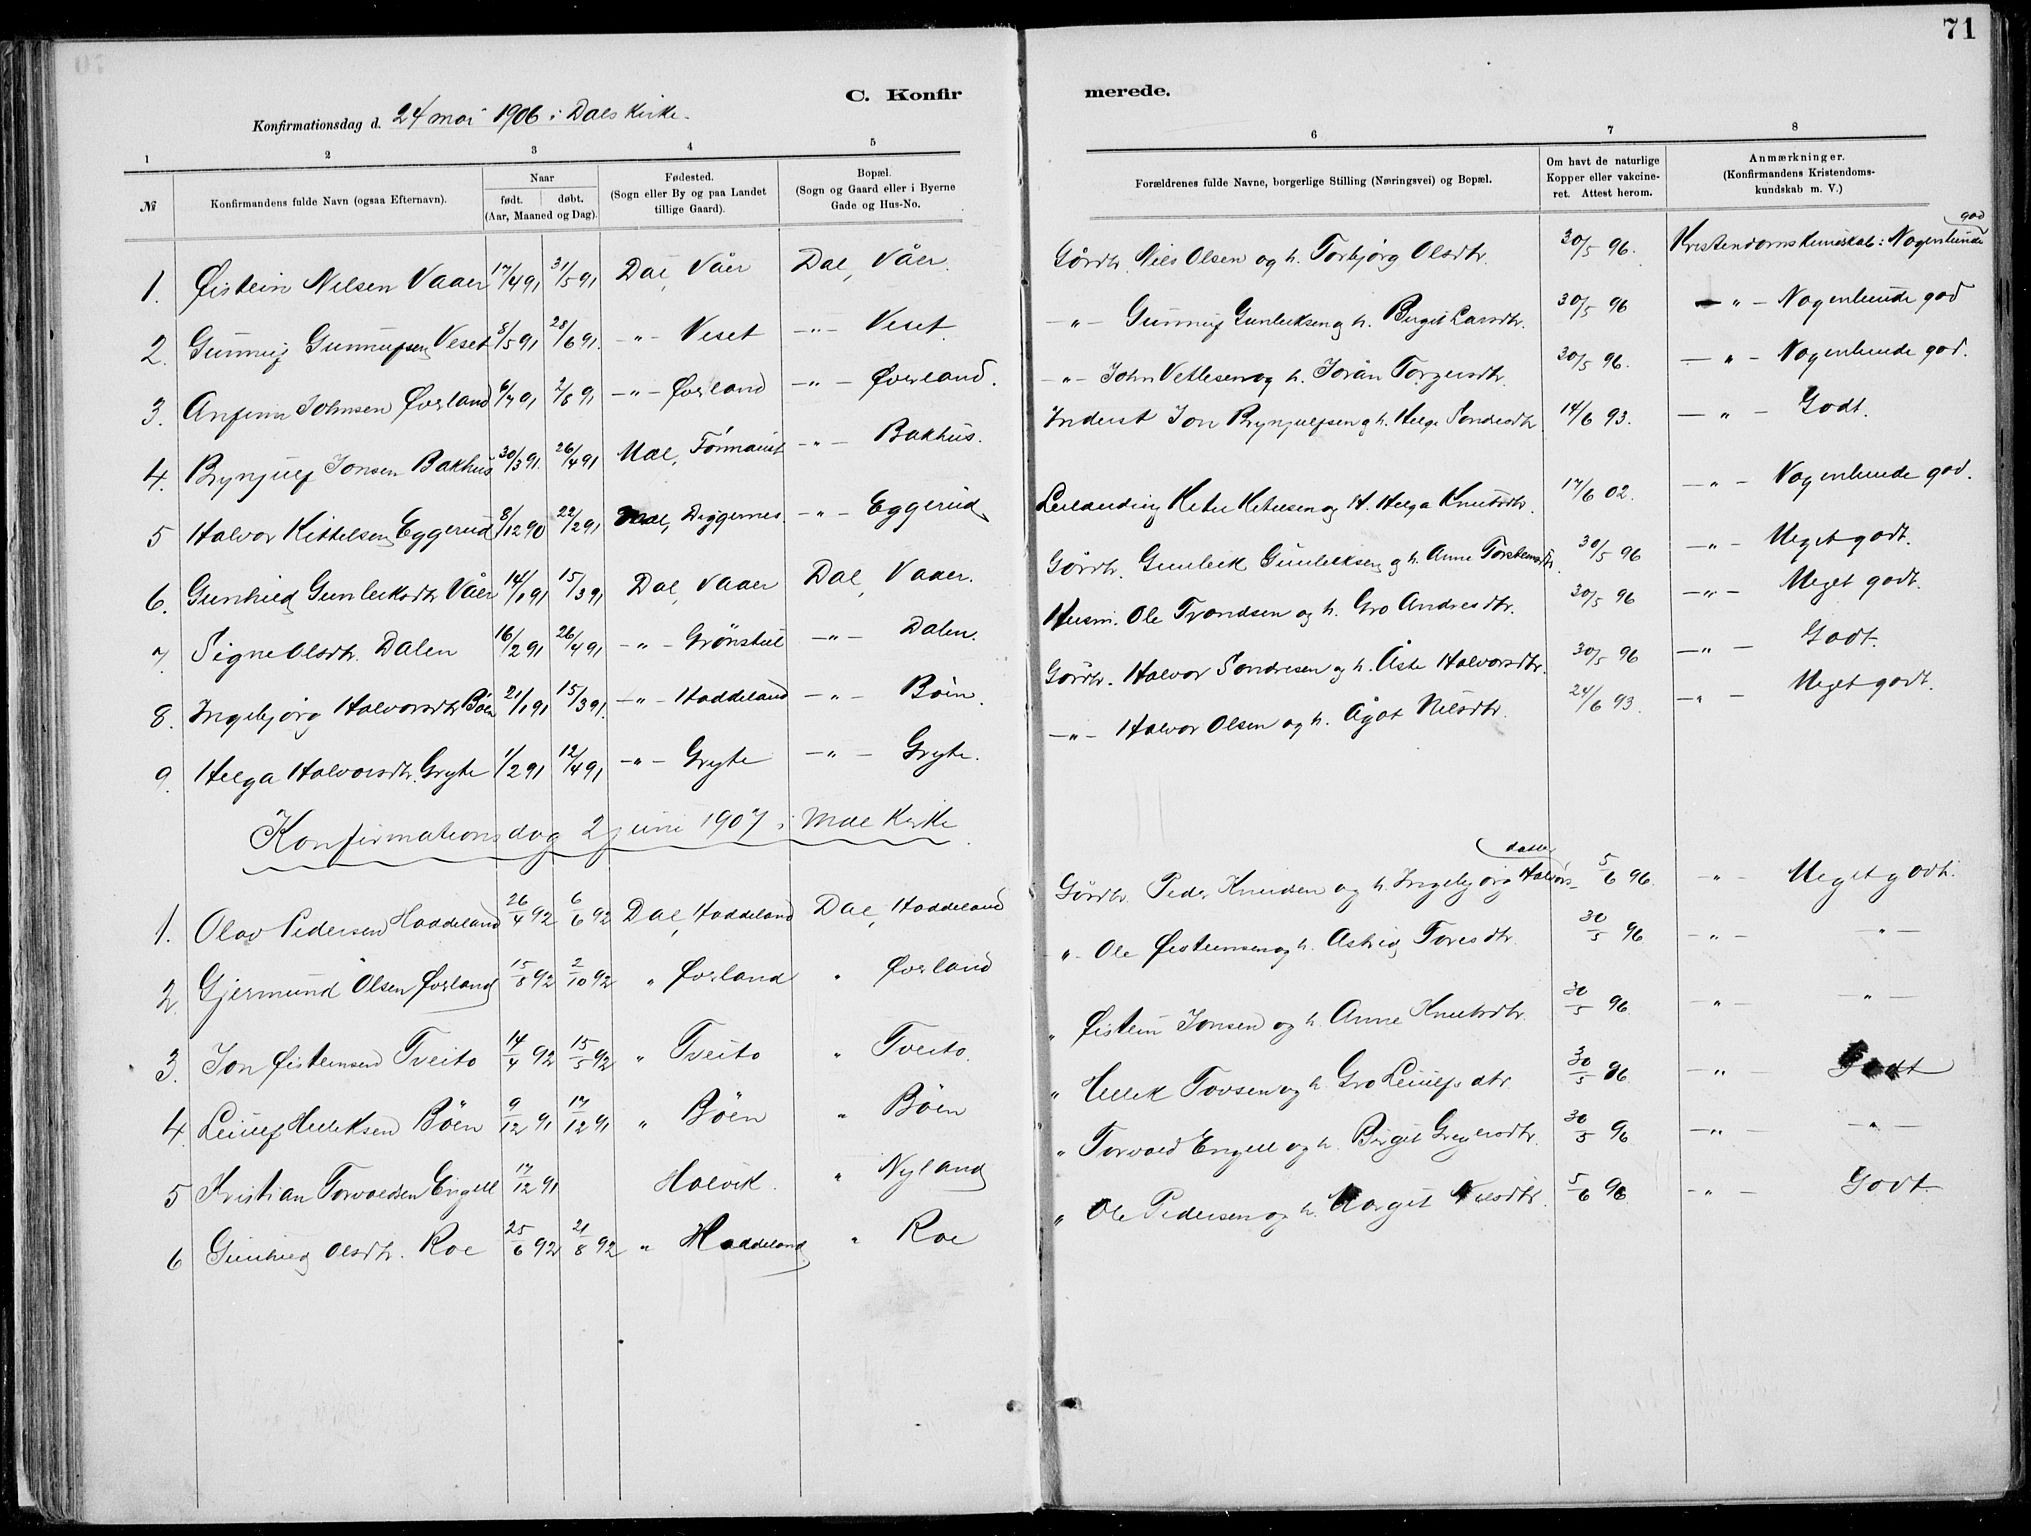 71
C. Konfirmerede.
Konfirmationsdag d. 24 mai 1906 i Dals Kirke.
1 2 3 4 5 6 7 8
№ Konfirmandens fulde Navn (ogsaa Efternavn). Naar født. døbt. (Aar, Maaned og Dag). Fødested. (Sogn eller By og paa Landet tillige Gaard). Bopæl. (Sogn og Gaard eller i Byerne Gade og Hus-No. Forældrenes fulde Navne, borgerlige Stilling (Næringsvei) og Bopæl. Om havt de naturlige Kopper eller vakcineret. Attest herom. Anmærkninger. (Konfirmandens Kristendomskundskab m. V.)
1. Øistein Nilsen Vaaer 17/4 91 31/5 91 Dal, Våer Dal, Våer. Gårdbr. Nils Olsen og h. Torbjørg Olsdtr. 30/5 96. Kristendomskundskab: Nogenlunde god
2. Gunnuf Gunnufsen Veset 8/5 91 28/6 91. -"- Veset -"- Veset -"- Gunnuf Gunleiksen og h. Birgit Larsdtr. 30/5 96 -"- Nogenlunde god
3. Anfinn Johnsen Øverland 6/7 91 2/8 91 -"- Øverland -"- Øverland. -"- John Vetlesen og h. Jorån Torgersdtr. 30/5 96. -"- Nogenlunde god.
4. Brynjulf Jonsen Bakhus 30/3 91. 26/4 91 Mæl, -"- Bakhus. Inderst Jon Brynjulfsen og h. Helge Sondresdtr 14/6 93. -"- Godt.
5 Halvor Kittelsen Eggerud 8/12 90 22/2 91 Mæl, Diggernes. -"- Eggerud Ketil Ketilsen og H. Helga Knutsdtr. 17/6 02. -"- Nogenlunde god.
6. Gunhild Gunleiksdtr Våer 14/1 91 15/3 91 Dal, Vaaer Dal, Vaaer. Gårdbr. Gunleik Gunleiksen og h. Anne Torsteinsdtr. 30/5 96 -"- Meget godt.
7 Signe Olsdtr. Dalen 16/2 91 26/4 91 -"- Grönstul -"- Dalen. Husm. Ole Trondsen og h. Gro Andresdtr. 30/5 96 -"- Meget godt.
8. Ingebjörg Halvorsdtr Böen 21/1 91 15/3 91. -"- Haddeland -"- Böen. Gårdbr. Halvor Sondresen og h. Åste Halvorsdtr. 30/5 96 -"- Godt.
9. Helga Halvorsdtr. Gryte 1/2 91 12/4 91 -"- Gryte -"- Gryte. -"- Halvor Olsen og h. Ågot Nilsdtr. 24/6 93. -"- Meget godt.
Konfirmationsdag 2 juni 1907 i Mæl Kirke.
1. Olav Pedersen Haddeland 26/4 92 6/6 92 Dal, Haddeland Dal, Haddeland Gårdbr. Peder Knudsen og h. Ingebjørg Halvorsdatter 5/6 96. -"- Meget godt.
2 Gjermund Olsen Øverland 15/8 92 2/10 92 " Øverland " Øverland -"- Ole Øisteinsen og h. Astrid Toresdtr. 30/5 96 -"- -"-
3. Jon Øisteinsen Tveito 14/4 92 15/5 92 " Tveito " Tveito. " Øistein Jonsen og h. Anne Knutsdtr. 30/5 96 -"- -"-
4 Leiulf Helleksen Böen 9/12 91 17/12 91 " Böen " Böen " Hellek Tovsen og h. Gro Leiulfsdtr 30/5 96 -"- Godt
5 Kristian Torvaldsen Engell 17/12 91 Halvik. " Nyland " Torvald Engell og h. Birgit Greyersdtr. 30/5 96 -"- -"-
6 Gunhild Olsdtr. Roe 25/6 92 21/8 92 " Haddeland " Roe " Ole Pedersen og h. Margit Nilsdtr. 5/6 96 -"- Godt.